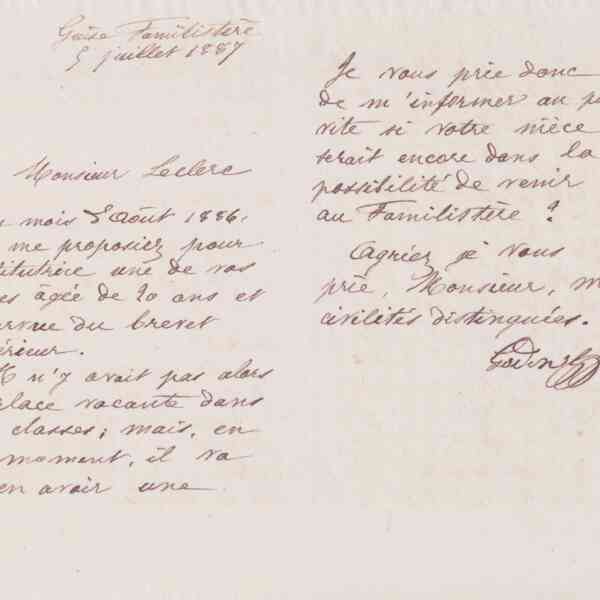 Guise Familistère
5 juillet 1887
Monsieur Leclerc
mois d'Août 1886,
me proposiez pour
titutrice une de vos
es âgée de 20 ans et
urvue du brevet
érieur.
Il n'y avait pas alors
place vacante dans
classes; mais, en
moment, il va
en avoir une
Je vous prie donc
de m'informer au p
vite si votre nièce
serait encore dans la
possibilité de venir
au Familistère ?
Agréez je vous
prie, Monsieur, m
civilités distinguées.
Godin